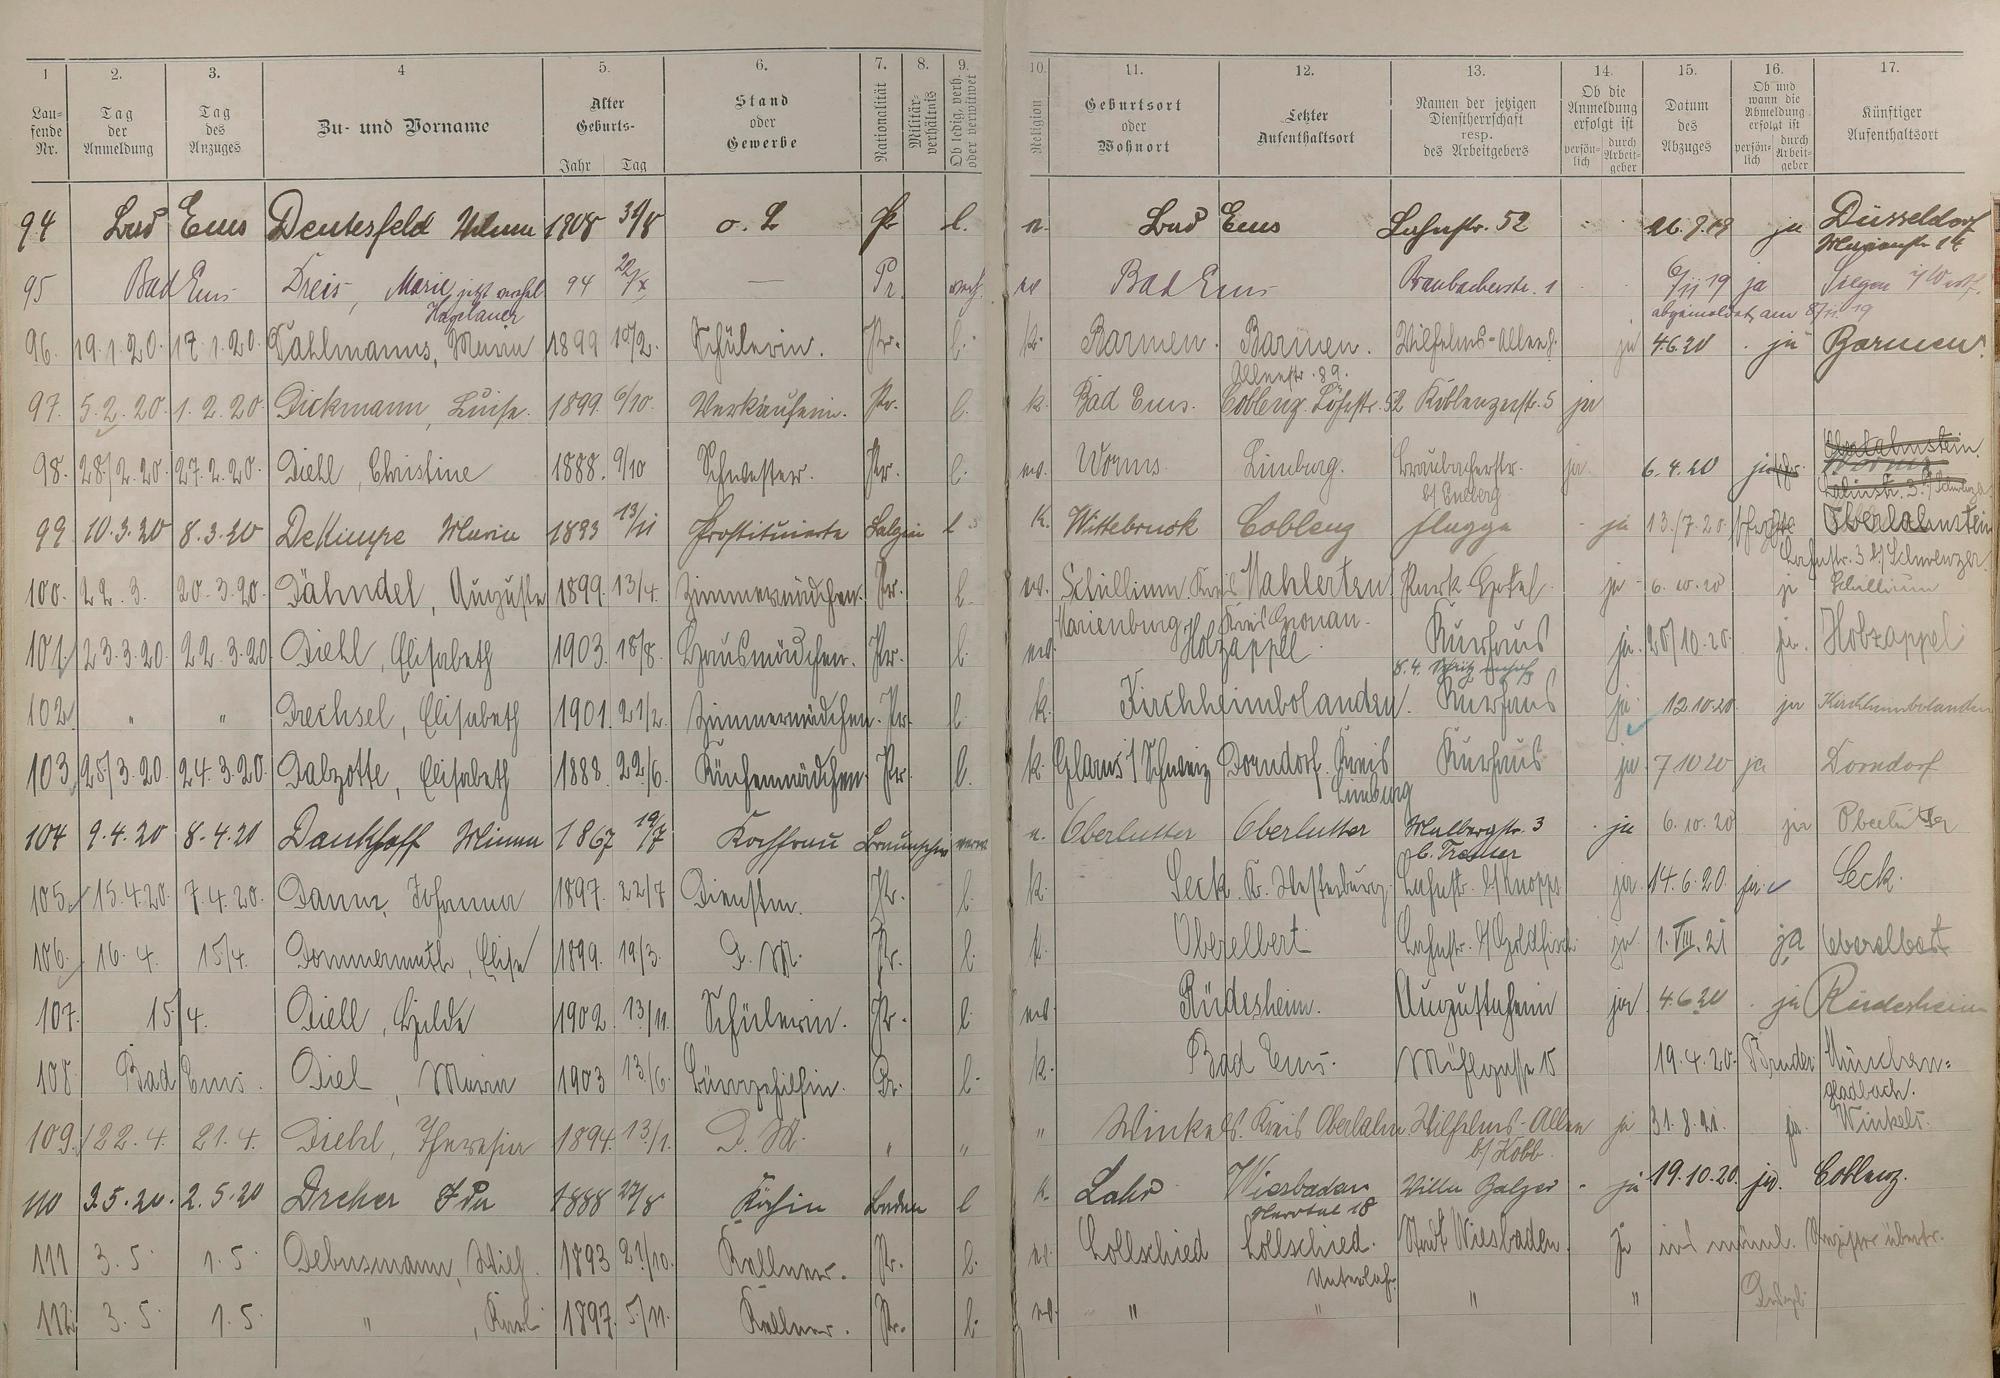 1 2. 3. 4 5. 6. 7. 8. 9. 10. 11. 12. 13. 14. 15. 16. 17.
Lau-fende Nr. Tag der Anmeldung Tag des Anzuges Zu- und Vorname Alter Geburts- Jahr Tag Stand oder Gewerbe Nationalität Militär-verhältnis Ob ledig, verh. oder verwitwet Religion Geburtsort oder Wohnort Letzter Aufenthaltsort Namen der jetzigen Dienstherrschaft resp. des Arbeitgebers Ob die Anmeldung erfolgt ist persön-lich durch Arbeit-geber Datum des Abzuges Ob und wann die Abmeldung erfolgt ist persön-lich durch Arbeit-geber Künftiger Aufenthaltsort
94 Bad Ems Deutesfeld 1908 31/8 o. B Pr l. Bad Ems Lahnstr. 52 26.9.19 ja Düsseldorf
95 Bad Ems Dreis, Marie jetzt 94 22/X — Pr. verh. ev Bad Ems Braubacherstr. 1 6/11 19 ja Siegen i/Westf.
abgemeldet am 8/11.19
96. 19.1.20. 17.1.20. Dahlmanns, Maria 1899 10/2. Schülerin. Pr. l. k. Barmen. Barmen. Wilhelms-Allee ja 4.6.20 ja Barmen.
Alleestr. 89.
97. 5.2.20. 1.2.20. Dickmann, Luise. 1899. 6/10. Verkäuferin. Pr. l. k. Bad Ems. Coblenz. Löhrstr. 52 Koblenzerstr. 5 ja
98. 28/2.20. 27.2.20. Diehl, Christine 1888. 9/10 Schwester. Pr. l. ev. Worms. Limburg. Braubacherstr. ja 6.4.20 ja Oberlahnstein. Worms
99 10.3.20 8.3.20 DeKimpe Maria 1893 13/11 Prostituierte Belgien l k. Wittebrook Coblenz Flugge ja 13/7.20 Oberlahnstein
Lahnstr. 3 b/ Schwenzer
100. 22.3. 20.3.20. Dähndel, Auguste 1899. 13/4. Zimmermädchen. Pr. l. ev. Schillium. Kreis Mahlerten Park Hotel. ja 6.10.20 ja Schillium
Marienburg Kreis Gronau.
101. 23.3.20. 22.3.20 Diehl, Elisabeth 1903. 18/8. Hausmädchen. Pr. l. ev. Holzappel. Kurhaus ja. 20/10.20. ja. Holzappel
102. " " Drechsel, Elisabeth 1901. 21/2. Zimmermädchen. Pr. l. k. Kirchheimbolanden. Kurhaus ja 12.10.20. ja Kirchheimbolanden
103. 25/3.20. 24.3.20. Dalzotte, Elisabeth 1888. 22/6. Küchenmädchen. Pr. l. k. Glarus i/Schweiz Dorndorf. Kreis Kurhaus ja 7 10 20 ja Dorndorf
Limburg
104 9.4.20 8.4.20 Dankhoff Minna 1867 19/7 Kochfrau verw. Oberlutter Oberlutter Malbergstr. 3 ja 6.10.20 ja Oberlutter
105. 15.4.20. 7.4.20. Dann, Johanna 1897. 22/7 Dienstm. Pr. l. k. Seck. K. Westerburg. Lahnstr. b/ Knopp ja. 14.6.20. ja. Seck.
106. 16.4. 15/4. Dommermuth, Elise 1899. 19/3. D. M. Pr. l. k. Oberelbert Lahnstr. b/ ja 1.VIII.21 ja Oberelbert
107. 15/4. Diell, Hilde 1902. 13/11. Schülerin. Pr. l. ev. Rüdesheim. Augustaheim ja 4.6.20 ja Rüdesheim
108 Bad Ems. Diel, Maria 1903 13/6. Bürogehilfin. Pr. l. k. Bad Ems. Mühlgasse 15 19.4.20. Bruder München=
gladbach.
109. 22.4. 21.4. Diehl, Theresia 1894. 13/1. D. M. " " " Winkels. Kreis Oberlahn Wilhelms-Allee ja 31.8.21. ja. Winkels.
b/ Kobb.
110 3.5.20. 2.5.20 Dreher Ida 1888 27/8 Köchin Baden l k. Lahr Wiesbaden Villa Balzer ja 19.10.20. ja. Coblenz.
Nerotal 18
111 3.5. 1.5. Debusmann, Wilh. 1893 Kellner. Pr. l. ev. Lollschied Lollschied. Stadt Wiesbaden. ja
Unterlahn.
112. 3.5. 1.5. " , Karl 1897. 5/11. Kellner. Pr. l. ev. " " " "